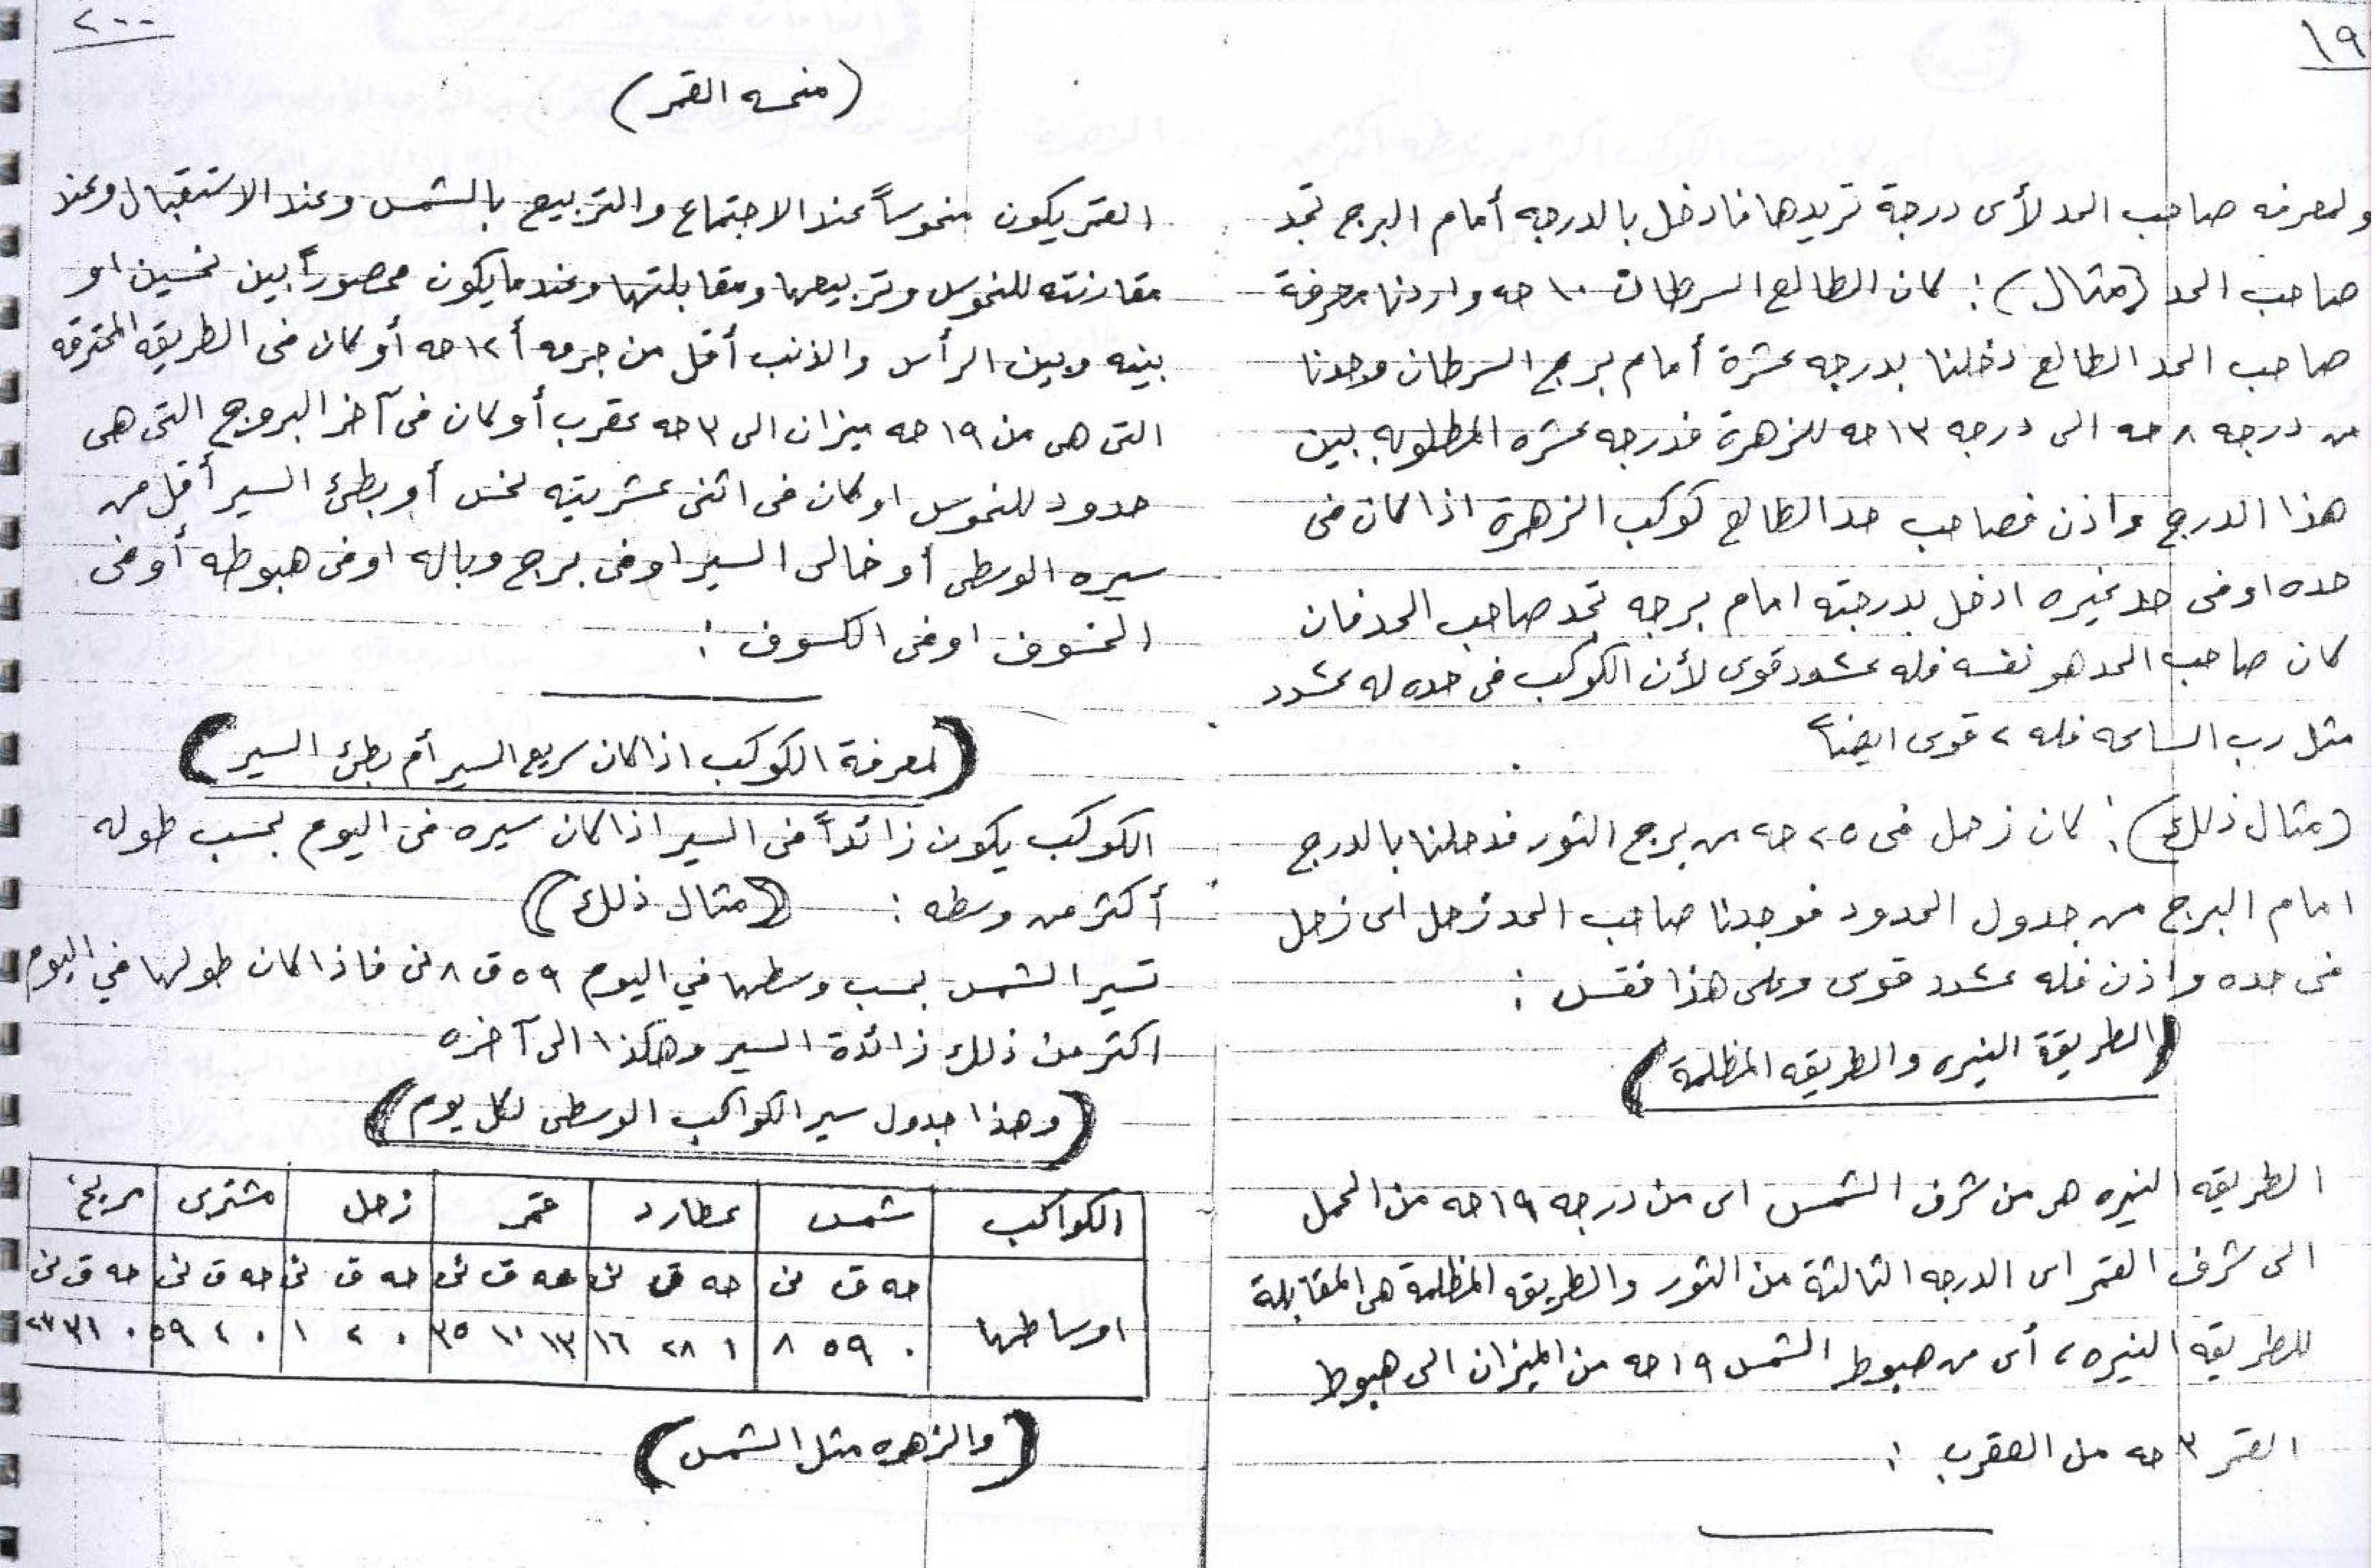 ١٩
ولمعرفه صاحب الحد لأى درجة تريدها فادخل بالدرجه أمام البرج تجد
صاحب الحد (مثال) : كان الطالع السرطان ١٠ حه واردنا معرفة
صاحب الحد الطالع دخلنا بدرجه عشرة أمام برج السرطان وجدنا
من درجه ٨ حه الى درجه ١٣ حه للزهرة فدرجه عشره المطلوبه بين
هذا الدرج واذن فصاحب حد الطالع كوكب الزهرة اذا كان فى
حده اوفى حد غيره ادخل بدرجته امام برجه تجد صاحب الحد فان
كان صاحب الحد هو نفسه فله عشود قوى لأن الكوكب فى حده له عشود
مثل رب الساعه فله ء قوى ايضاً
(مثال ذلك) : كان زحل فى ٢٥ حه من برج الثور فدخلنا بالدرج
امام البرج من جدول الحدود فوجدنا صاحب الحد زحل اى زحل
فى حده واذن فله عشود قوى وعلى هذا فقس :
(الطريقة النيره والطريقه المظلمة)
الطريقه النيره هى من شرف الشمس اى من درجه ١٩ حه من الحمل
الى شرف القمر اى الدرجه الثالثة من الثور والطريقه المظلمة هى المقابلة
للطريقه النيره ، أى من هبوط الشمس ١٩ حه من الميزان الى هبوط
القمر ٣ حه من العقرب :
٢٠٠
(منحسه القمر)
القمر يكون منحوساً عند الاجتماع والتربيع بالشمس وعند الاستقبال وعند
مقارنته للنحوس وتربيعها ومقابلتها وعندما يكون محصوراً بين نحسين او
بينه وبين الرأس والذنب أقل من جرمه أ ١٢ حه أو كان فى الطريقه المحترقه
التى هى من ١٩ حه ميزان الى ٣ حه عقرب أو كان فى آخر البروج التى هى
حدود للنحوس او كان فى اثنى عشريته نحس أو بطئ السير أقل من
سيره الوسطى أو خالى السير اوفى برج وباله اوفى هبوطه أوفى
الخسوف اوفى الكسوف :
(لمعرفة الكوكب اذا كان سريع السير أم بطئ السير)
الكوكب يكون زائداً فى السير اذا كان سيره فى اليوم بحسب طوله
أكثر من وسطه : (مثال ذلك)
تسير الشمس بحسب وسطها في اليوم ٥٩ ق ٨ نى فاذا كان طولها في اليوم
اكثر من ذلك زائدة السير وهكذا الى آخره
(وهذا جدول سير الكواكب الوسطى لكل يوم)
الكواكب شمس عطارد قمر زحل مشترى مريخ
حه ق نى حه ق نى حه ق نى حه ق نى حه ق نى حه ق نى
اوساطها ٠ ٥٩ ٨ ١ ٢٨ ١٦ ١٣ ١٠ ٣٥ ٠ ٢ ١ ٠ ٤ ٥٩ ٠ ٣١ ٢٧
(والزهره مثل الشمس)